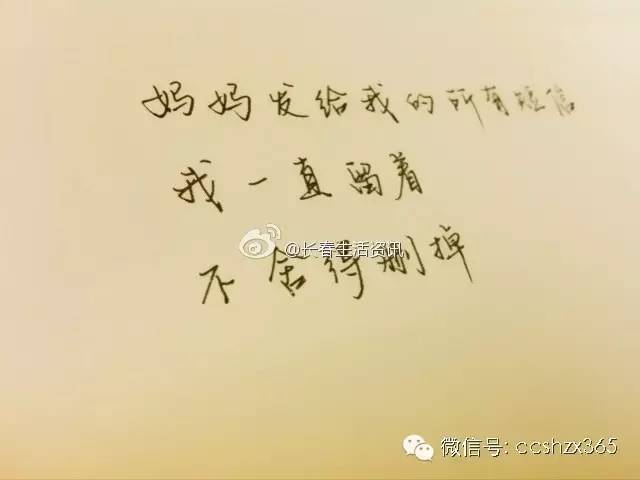 妈妈发给我的所有短信
我一直留着
@长春生活资讯
不舍得删掉
微信号: ccshzx365